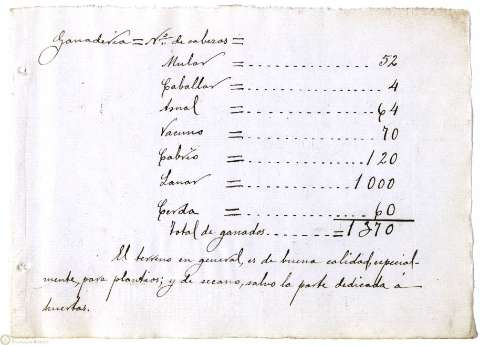 Ganadería = No. de cabezas =
Mular = 52
Caballar = 4
Asnal = 64
Vacuno = 70
Cabrío = 120
Lanar = 1000
Cerda = 60
Total de ganados = 1370
El terreno en general, es de buena calidad, especial-
mente, para plantíos; y de secano, salvo la parte dedicada á
huertas.